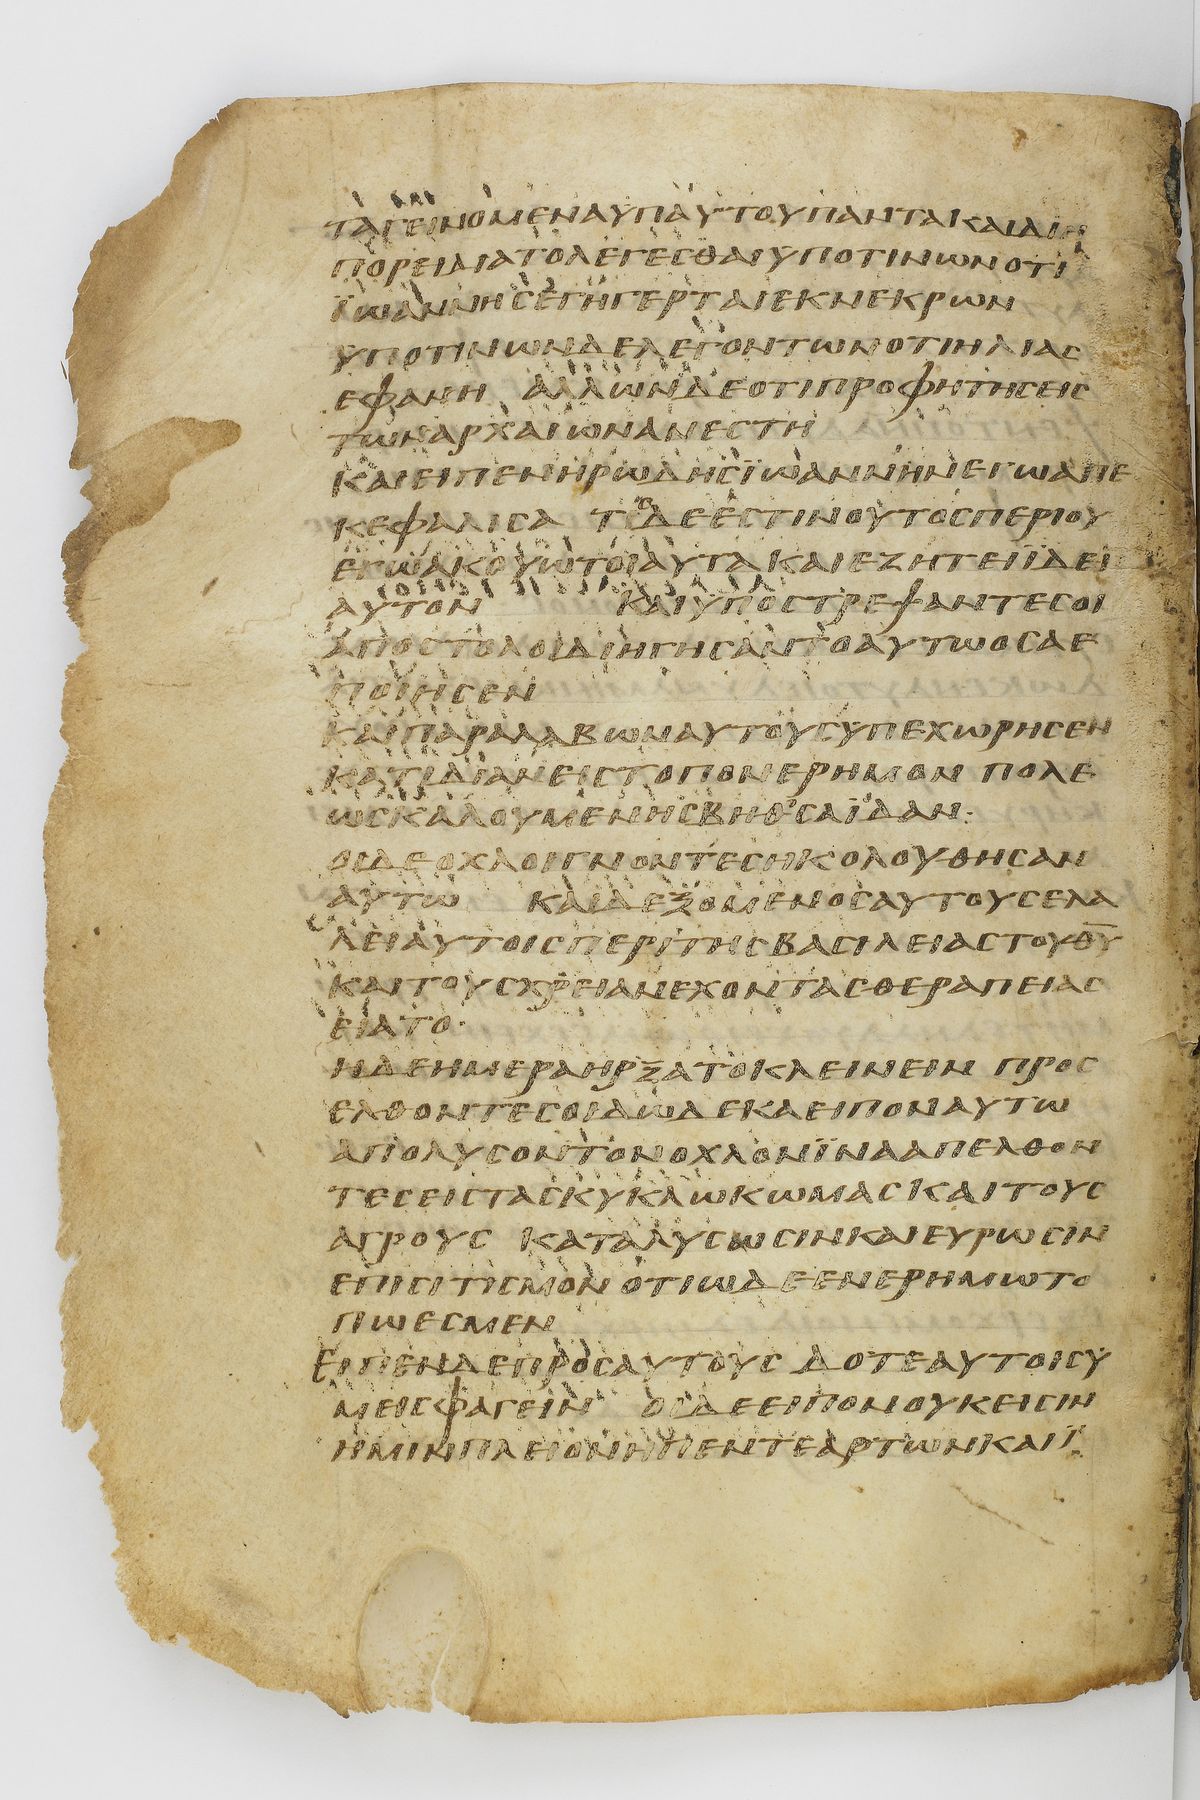 ΤΑΓΕΙΝΟΜΕΝΑΥΠΑΥΤΟΥΠΑΝΤΑΚΑΙΔΙΗ
ΠΟΡΕΙΔΙΑΤΟΛΕΓΕΣΘΑΙΥΠΟΤΙΝΩΝΟΤΙ
ΪΩΑΝΝΗΣΕΓΗΓΕΡΤΑΙΕΚΝΕΚΡΩΝ
ΥΠΟΤΙΝΩΝΔΕΛΕΓΟΝΤΩΝΟΤΙΗΛΙΑΣ
ΕΦΑΝΗ ΑΛΛΩΝΔΕΟΤΙΠΡΟΦΗΤΗΣΕΙΣ
ΤΩΝΑΡΧΑΙΩΝΑΝΕΣΤΗ
ΚΑΙΕΙΠΕΝΗΡΩΔΗΣΪΩΑΝΝΗΝΕΓΩΑΠΕ
ΚΕΦΑΛΙΣΑ ΤΙΣΔΕΕΣΤΙΝΟΥΤΟΣΠΕΡΙΟΥ
ΕΓΩΑΚΟΥΩΤΟΙΑΥΤΑΚΑΙΕΖΗΤΕΙΪΔΕΙΝ
ΑΥΤΟΝ ΚΑΙΥΠΟΣΤΡΕΨΑΝΤΕΣΟΙ
ΑΠΟΣΤΟΛΟΙΔΙΗΓΗΣΑΝΤΟΑΥΤΩΟΣΑΕ
ΠΟΙΗΣΕΝ
ΚΑΙΠΑΡΑΛΑΒΩΝΑΥΤΟΥΣΥΠΕΧΩΡΗΣΕΝ
ΚΑΤΙΔΙΑΝΕΙΣΤΟΠΟΝΕΡΗΜΟΝ ΠΟΛΕ
ΩΣΚΑΛΟΥΜΕΝΗΣΒΗΘΣΑΪΔΑΝ·
ΟΙΔΕΟΧΛΟΙΓΝΟΝΤΕΣΗΚΟΛΟΥΘΗΣΑΝ
ΑΥΤΩ ΚΑΙΔΕΞΟΜΕΝΟΣΑΥΤΟΥΣΕΛΑ
ΛΕΙΑΥΤΟΙΣΠΕΡΙΤΗΣΒΑΣΙΛΕΙΑΣΤΟΥΘΥ
ΚΑΙΤΟΥΣΧΡΕΙΑΝΕΧΟΝΤΑΣΘΕΡΑΠΕΙΑΣ
ΕΙΑΤΟ·
ΗΔΕΗΜΕΡΑΗΡΞΑΤΟΚΛΕΙΝΕΙΝ ΠΡΟΣ
ΕΛΘΟΝΤΕΣΟΙΔΩΔΕΚΑΕΙΠΟΝΑΥΤΩ
ΑΠΟΛΥΣΟΝΤΟΝΟΧΛΟΝΪΝΑΑΠΕΛΘΟΝ
ΤΕΣΕΙΣΤΑΣΚΥΚΛΩΚΩΜΑΣΚΑΙΤΟΥΣ
ΑΓΡΟΥΣ ΚΑΤΑΛΥΣΩΣΙΝΚΑΙΕΥΡΩΣΙΝ
ΕΠΙΣΙΤΙΣΜΟΝ ΟΤΙΩΔΕΕΝΕΡΗΜΩΤΟ
ΠΩΕΣΜΕΝ
ΕΙΠΕΝΔΕΠΡΟΣΑΥΤΟΥΣ ΔΟΤΕΑΥΤΟΙΣΥ
ΜΕΙΣΦΑΓΕΙΝ ΟΙΔΕΕΙΠΟΝΟΥΚΕΙΣΙΝ
ΗΜΙΝΠΛΕΙΟΝΗΠΕΝΤΕΑΡΤΩΝΚΑΙΪ